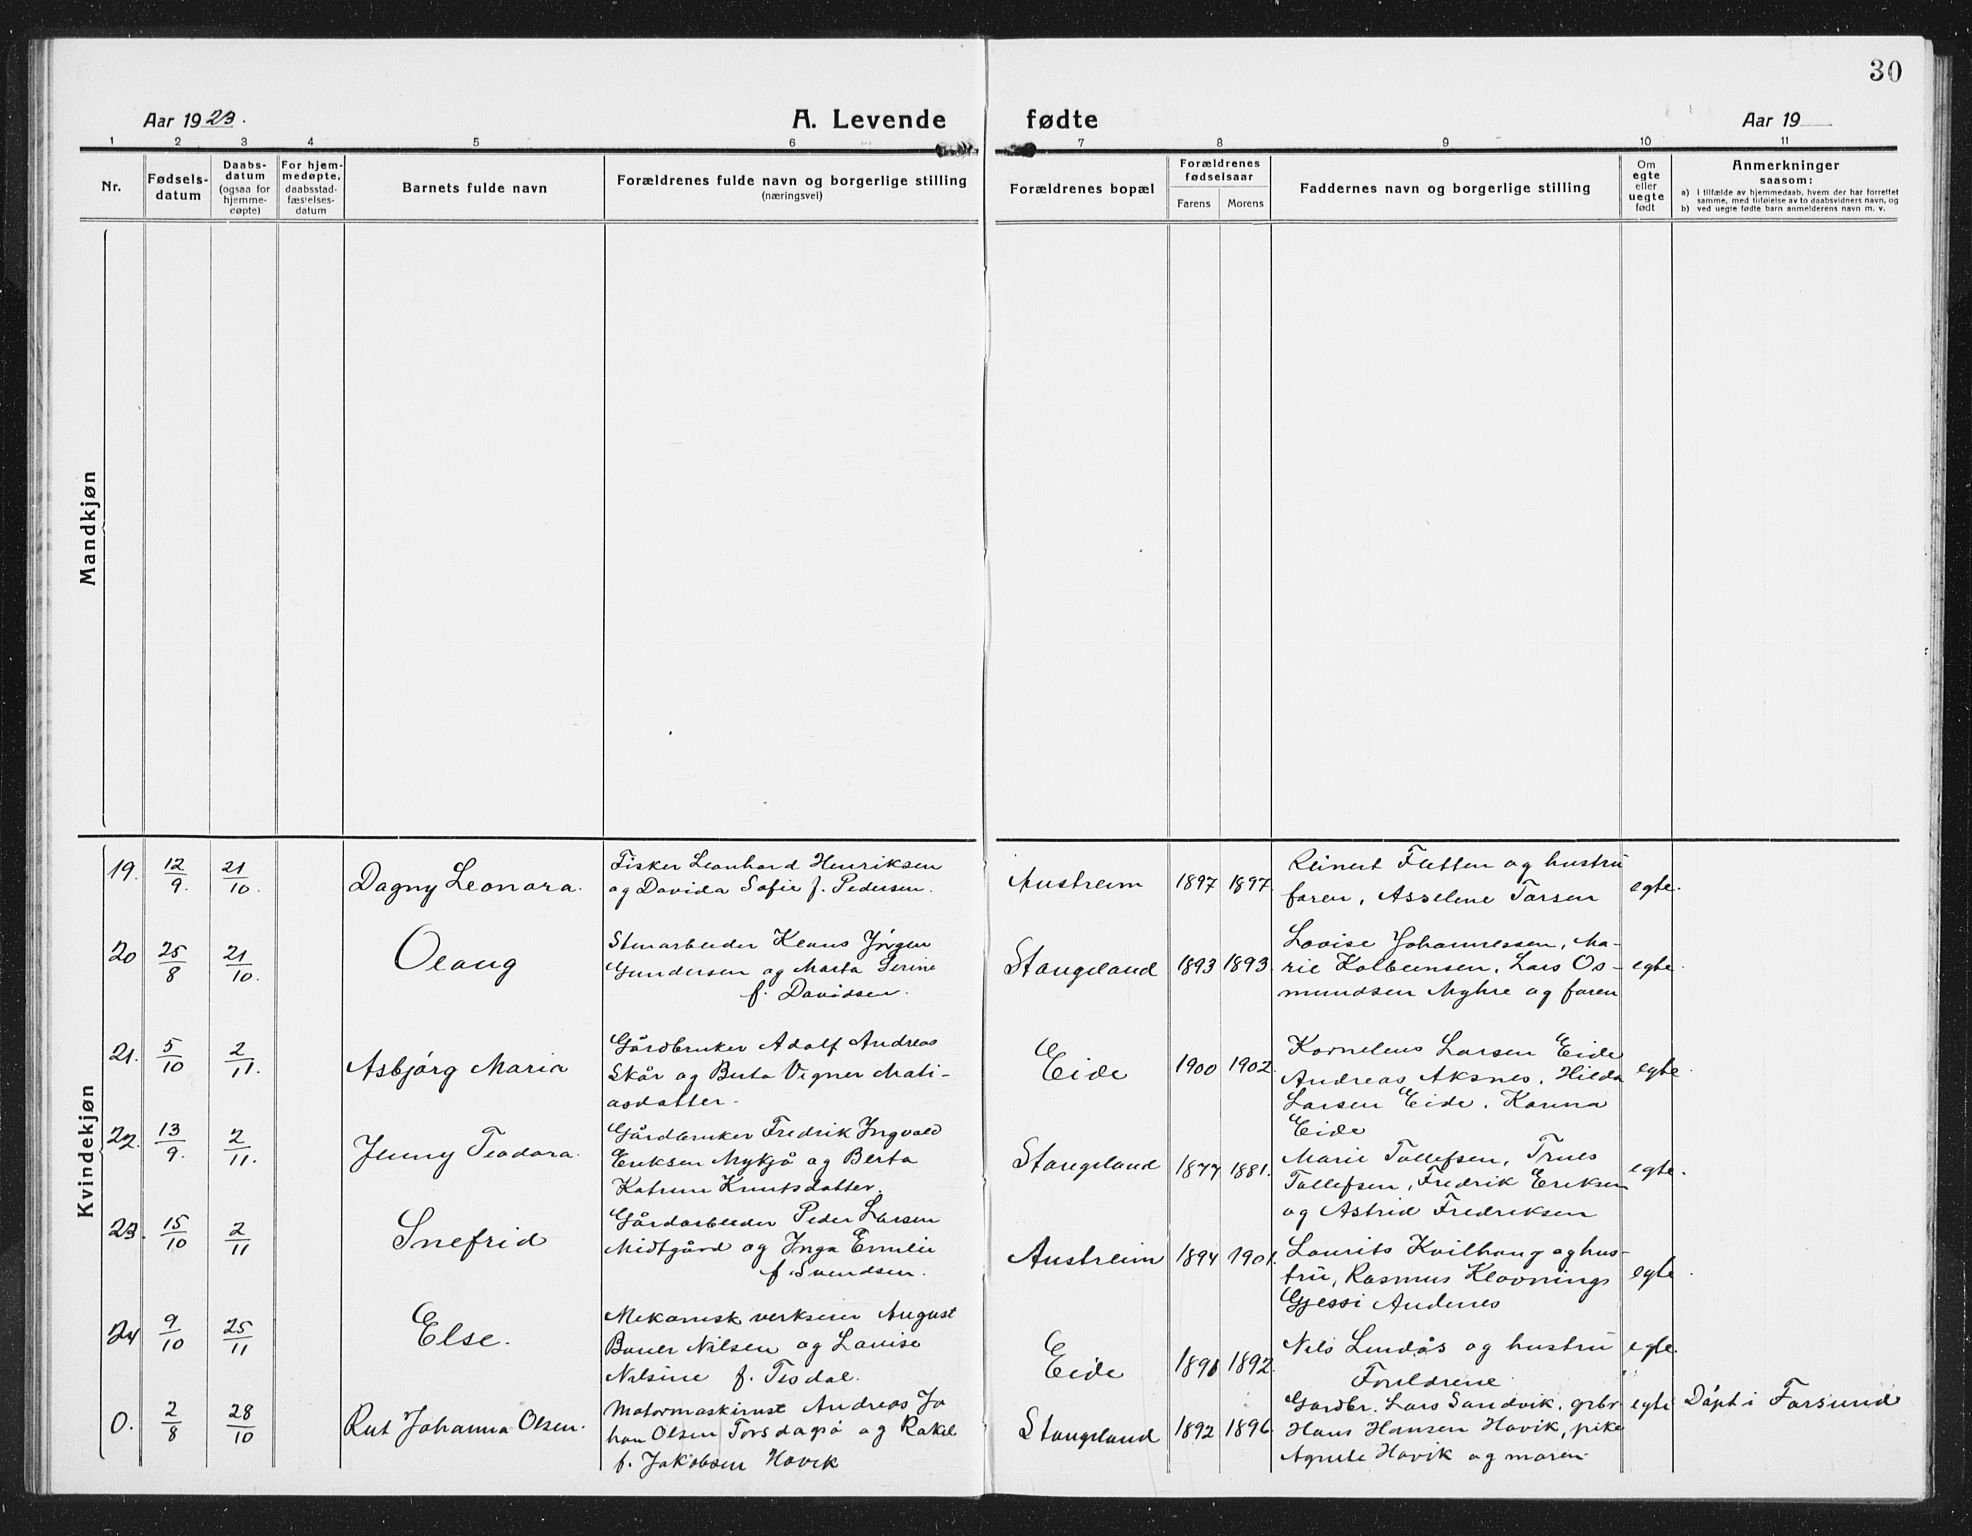 30
Aar 1923.
A. Levende fødte
Aar 19
1 2 3 4 5 6 7 8 9 10 11
Nr.
Fødsels-
datum
Daabs-
datum
(ogsaa for
hjemme-
døpte)
For hjem-
medøpte,
daabsstad-
fæstelses-
datum
Barnets fulde navn
Forældrenes fulde navn og borgerlige stilling
(næringsvei)
Forældrenes bopæl
Forældrenes
fødselsaar
Farens Morens
Faddernes navn og borgerlige stilling
Om
egte
eller
uegte
født
Anmerkninger
saasom:
a) I tilfælde av hjemmedaab, hvem der har forrettet
samme, med tilføielse av to daabsvidners navn, og
b) ved uegte fødte barn anmelderens navn m. v.
Mandkjøn
Kvindekjøn
19. 12/9. 21/10. Dagny Leonora.
Fisker Leonhard Henriksen
og Davida Sofie f. Pedersen.
Austreim 1897 1897.
Reinert Fletten og hustru
faren, Asseline Torsen
egte.
20 25/8 21/10. Olaug
Stenarbeider Klaus Jörgen
Gundersen og Marta Serine
f. Davidsen.
Stangeland 1893 1893.
Lovise Johannessen, Ma-
rie Kolbeinsen, Lars Os-
mundsen Myhre og faren
egte.
21. 5/10 2/11. Asbjörg Maria
Gårdbruker Adolf Andreas
Skår og Berta Vigner Mati-
asdatter.
Eide 1900 1902.
Kornelius Larsen Eide
Andreas Aksnes, Hilda
Larsen Eide, Karina
Eide
egte.
22. 13/9. 2/11. Jenny Teodora.
Gårdbruker Fredrik Ingvald
Eriksen Mykjå og Berta
Katrine Knutsdatter.
Stangeland 1877 1881.
Marie Tollefsen, Truls
Tollefsen, Fredrik Eriksen
og Astrid Fredriksen
egte.
23. 15/10 2/11 Snefrid
Gårdarbeider Peder Larsen
Midtgård og Inga Emilie
f. Svendsen.
Austreim 1894 1901.
Laurits Kvilhaug og hus-
tru, Rasmus Klovnings
Gjessi Andenes
egte.
24 9/10 25/11 Else.
Mekanisk verkseier August
Nilsen og Lovise
Nilsine f. Tisdal.
Eide 1891 1892.
Nils Lindås og hustru
Foreldrene
egte.
0. 2/8 28/10 Rut Johanna Olsen.
Motormaskinist Andreas Jo
han Olsen Torsdagsö og Rakel
f. Jakobsen Hovik
Stangeland 1892 1896.
Gardbr. Lars Sandvik, grbr
Hans Hansen Hovik, pike
Agnete Hovik og moren
egte
Döpt i Farsund